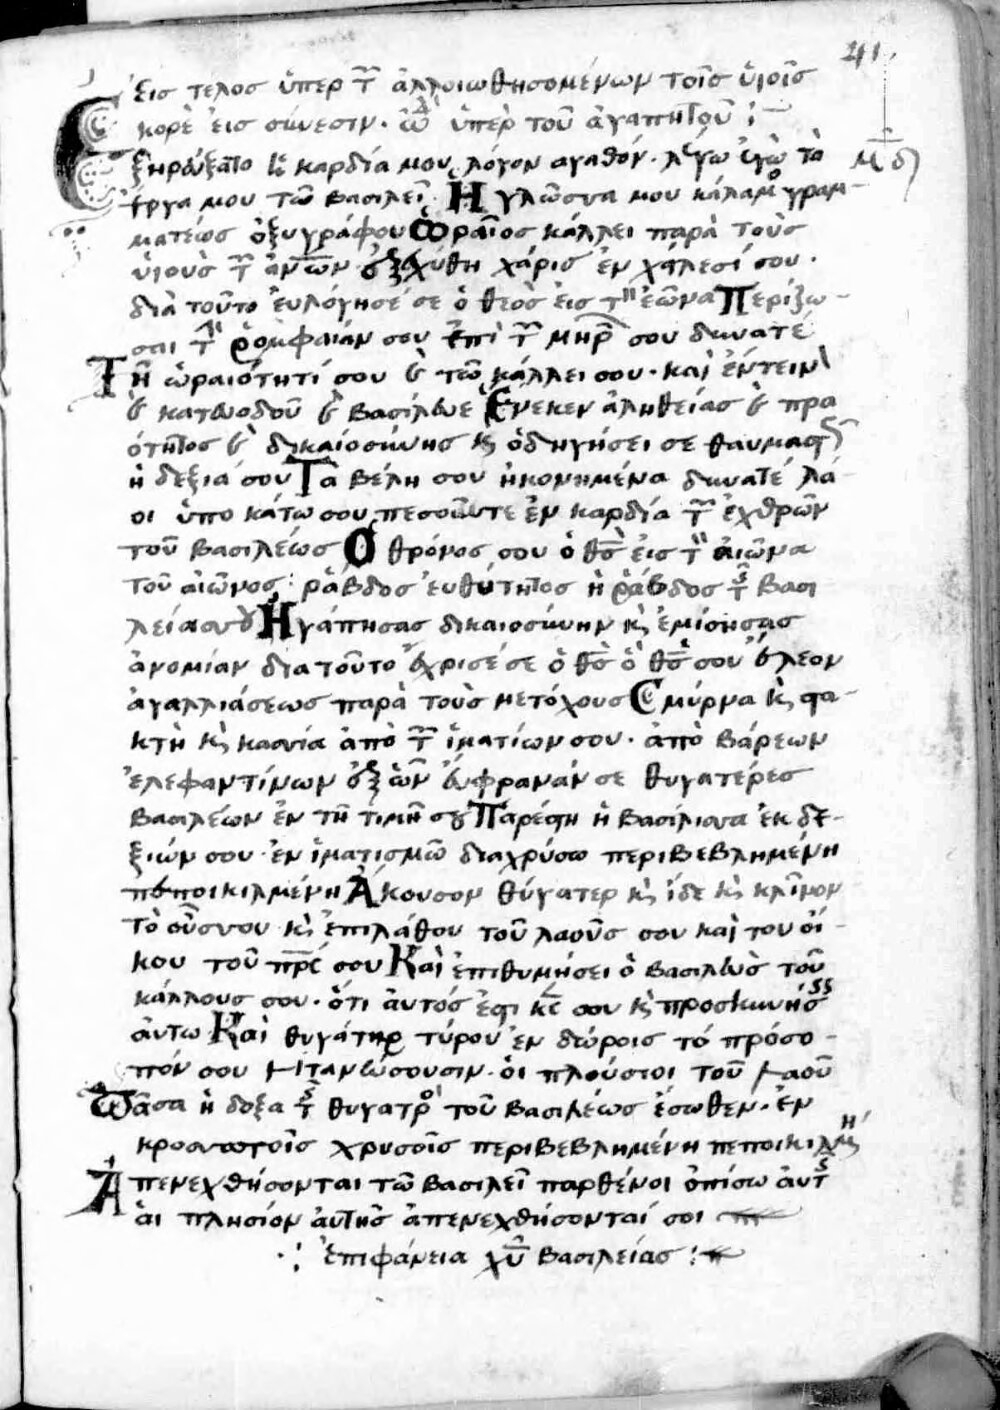 41
Ἐις τελοσ ὑπερ τῶν ἀλλοιωθησομένων τοῖσ ὑιοῖσ
κορὲ ἐισ σύνεσιν· ὠδὴ ὑπὲρ τοῦ ἀγαπητοῦ
ξηρεύξατο ἡ καρδία μου λόγον αγαθόν· λέγω ἐγὼ τὰ
ἔργα μου τῶ βασιλεῖ Η γλῶσσα μου κάλαμος γραμ-
ματέωσ ὀξυγράφου Ωραῖοσ κάλλει παρὰ τοὺσ
ὑιοὺσ τῶν ἀνων ἐξεχύθη χάρισ ἐν χείλεσί σου·
διὰ τοῦτο ἐυλόγησέ σε ὁ θεὸσ ἐισ τὸν ἐῶνα Περίζω-
σαι τὴν ῥομφαίαν σου ἐπὶ τὸν μηρόν σου δυνατέ
Τῆ ὡραιότητί σου καὶ τῶ κάλλει σου· καὶ ἔντεινον
καὶ κατευοδοῦ καὶ βασίλευε Ενεκεν ἀληθείασ καὶ πρα
ότητοσ καὶ δικαίοσύνησ κ ὁδηγήσει σε θαυμαστῶσ
ἡ δεξιά σου Τὰ βέλη σου ἠκονημένα δυνατέ λα-
οι ὑπο κάτω σου πεσοῦντε ἐν καρδία τῶν ἐχθρῶν
τοῦ βασιλέωσ Ο θρόνοσ σου ὁ θσ ἐισ τὸν ἀιῶνα
τοῦ αιῶνοσ: ῥάβδοσ ἐυθύτητοσ ἡ ῥάβδοσ τῆς βασι
λείασ σου Ηγάπησασ δικαιοσύνην κ ἐμίσησασ
ἀνομίαν διατοῦτο ἔχρισέσε ὁ θσ ὁ θσ σου ἔλεον
ἀγαλλιάσεωσ παρὰ τοὺσ μετόχουσ Σμύρνα κ στα-
κτὴ κ κασσία ἀπὸ τῶν ἱματίων σου· ἀπὸ βάρεων
ἐλεφαντίνων ἐξ ὧν ἐυφρανάν σε θυγατέρεσ
βασιλέων ἐν τῆ τιμῆ σου Παρέστη ἡ βασίλισσα ἐκ δε-
ξιών σου ἐν ἱματισμῶ διαχρύσω περιβεβλημένη
πεποικιλμένη Ακουσον θύγατερ κ ἰδε κ κλῖνον
τὸ οὖσσου κ ἐπιλάθου τοῦ λαοῦσ σου καὶ του οἴ-
κου τοῦ πρσ σου Καὶ ἐπιθυμήσει ὁ βασιλεὺσ τοῦ
κάλλουσ σου· ὅτι ἀυτόσ ἐστι κσ σου κ προσκυνήσεις
ἀυτω Καὶ θυγάτηρ τύρου ἐν δώροισ τό πρόσο-
πόν σου λιτανεύσουσιν· ὁι πλούσιοι τοῦ λαοῦ
Πᾶσα ἡ δοξα τῆς θυγατρὸς τοῦ βασιλέωσ ἐσωθεν· ἐν
κροσσωτοῖσ χρυσοῖσ περιβεβλημένη πεποικιλμένη
Απενεχθήσονται τῶ βασιλεῖ παρθένοι ὀπίσω ἀυτῆς
ἁι πλησίον ἀυτῆσ ἀπενεχθήσονταί σοι
ἐπιφάνεια χυ βασιλείασ